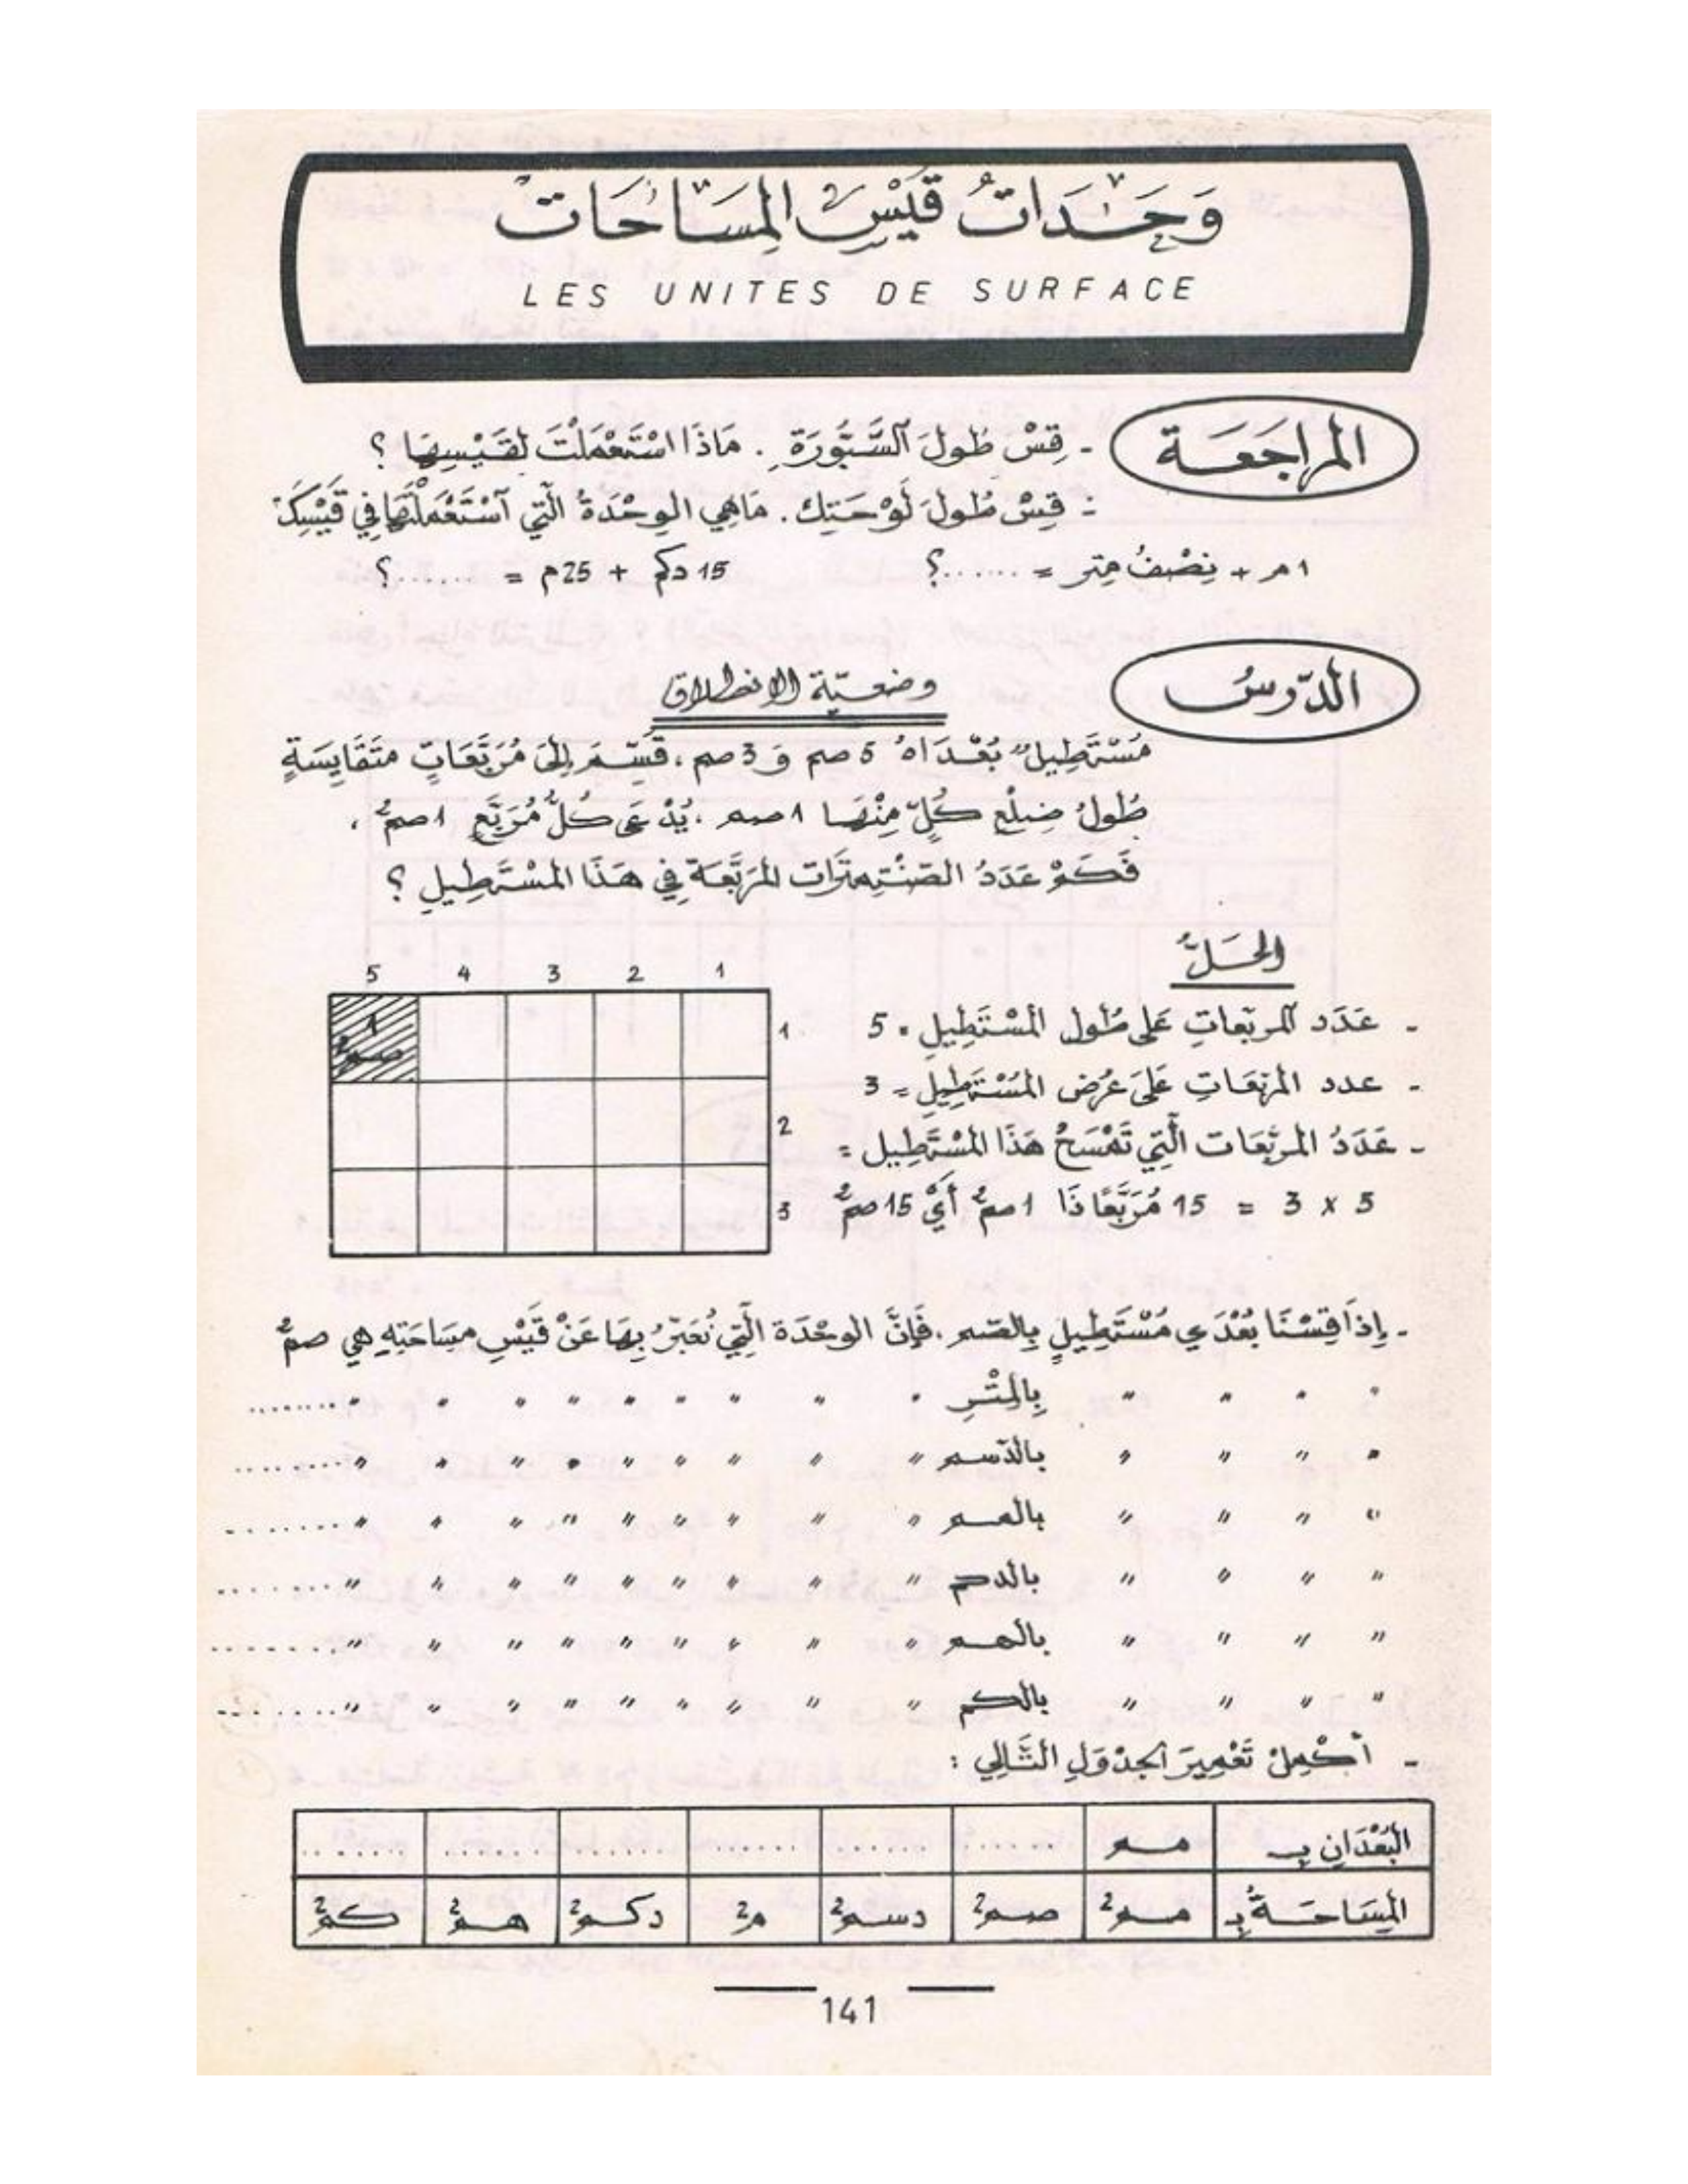 وَحَدَاتُ قَيْسِ المِسَاحَات
LES UNITES DE SURFACE
المراجَعَة
- قِسْ طُولَ السَّبُّورَةِ . مَاذَا اسْتَعْمَلْتَ لقَيْسِهَا ؟
- قِسْ طُولَ لَوْحَتِك . مَا هِي الوِحْدَةُ الّتِي آسْتَعْمَلْتَهَا فِي قَيْسِكَ
1 م + نِصْفُ مِتر = ......؟ 15 دكم + 25 م = ......؟
الدّرسُ
وضعيّة الانطلاق
مُسْتَطِيلٌ بُعْدَاهُ 5 صم وَ 3 صم ، قُسِّمَ إِلَى مُرَبَّعَاتٍ مُتَقَايِسَةٍ
طُولُ ضِلْعِ كُلّ مِنْهَا 1 صم . يُدْعَى كُلُّ مُرَبَّعٍ 1 صم² .
فَكَمْ عَدَدُ الصَّنْتِمِتْرَات المُرَبَّعَة فِي هَذَا المُسْتَطِيلِ ؟
الحَلُّ
5 4 3 2 1
1
2
3
1 صم²
- عَدَد المربّعاتِ عَلى طُول المُسْتَطِيلِ = 5
- عدد المربّعَاتِ عَلَى عَرْض المُسْتَطِيلِ = 3
- عَدَدُ المربّعَات الّتِي تَمْسَحُ هَذَا المُسْتَطِيل =
5 x 3 = 15 مُرَبَّعًا ذَا 1 صم² أَيْ 15 صم²
- إِذَا قِسْنَا بُعْدَي مُسْتَطِيلٍ بِالصّم ، فَإِنَّ الوحْدَة الّتِي نُعَبِّرُ بِهَا عَنْ قَيْسِ مِسَاحَتِهِ هي صم²
" " " " بِالمِتْرِ " " " " " " " " " ........
" " " " بالدّسم " " " " " " " " " ........
" " " " بالمم " " " " " " " " " ........
" " " " بالدكم " " " " " " " " " ........
" " " " بالهم " " " " " " " " " ........
" " " " بالكم " " " " " " " " " ........
- أكْمِلْ تَعْمِيرَ الجدْوَلِ التَّالِي :
البُعْدَانِ بِـ مم ...... ...... ...... ...... ...... ......
المِسَاحَةُ بِـ مم² صم² دسم² م² دكم² هم² كم²
141